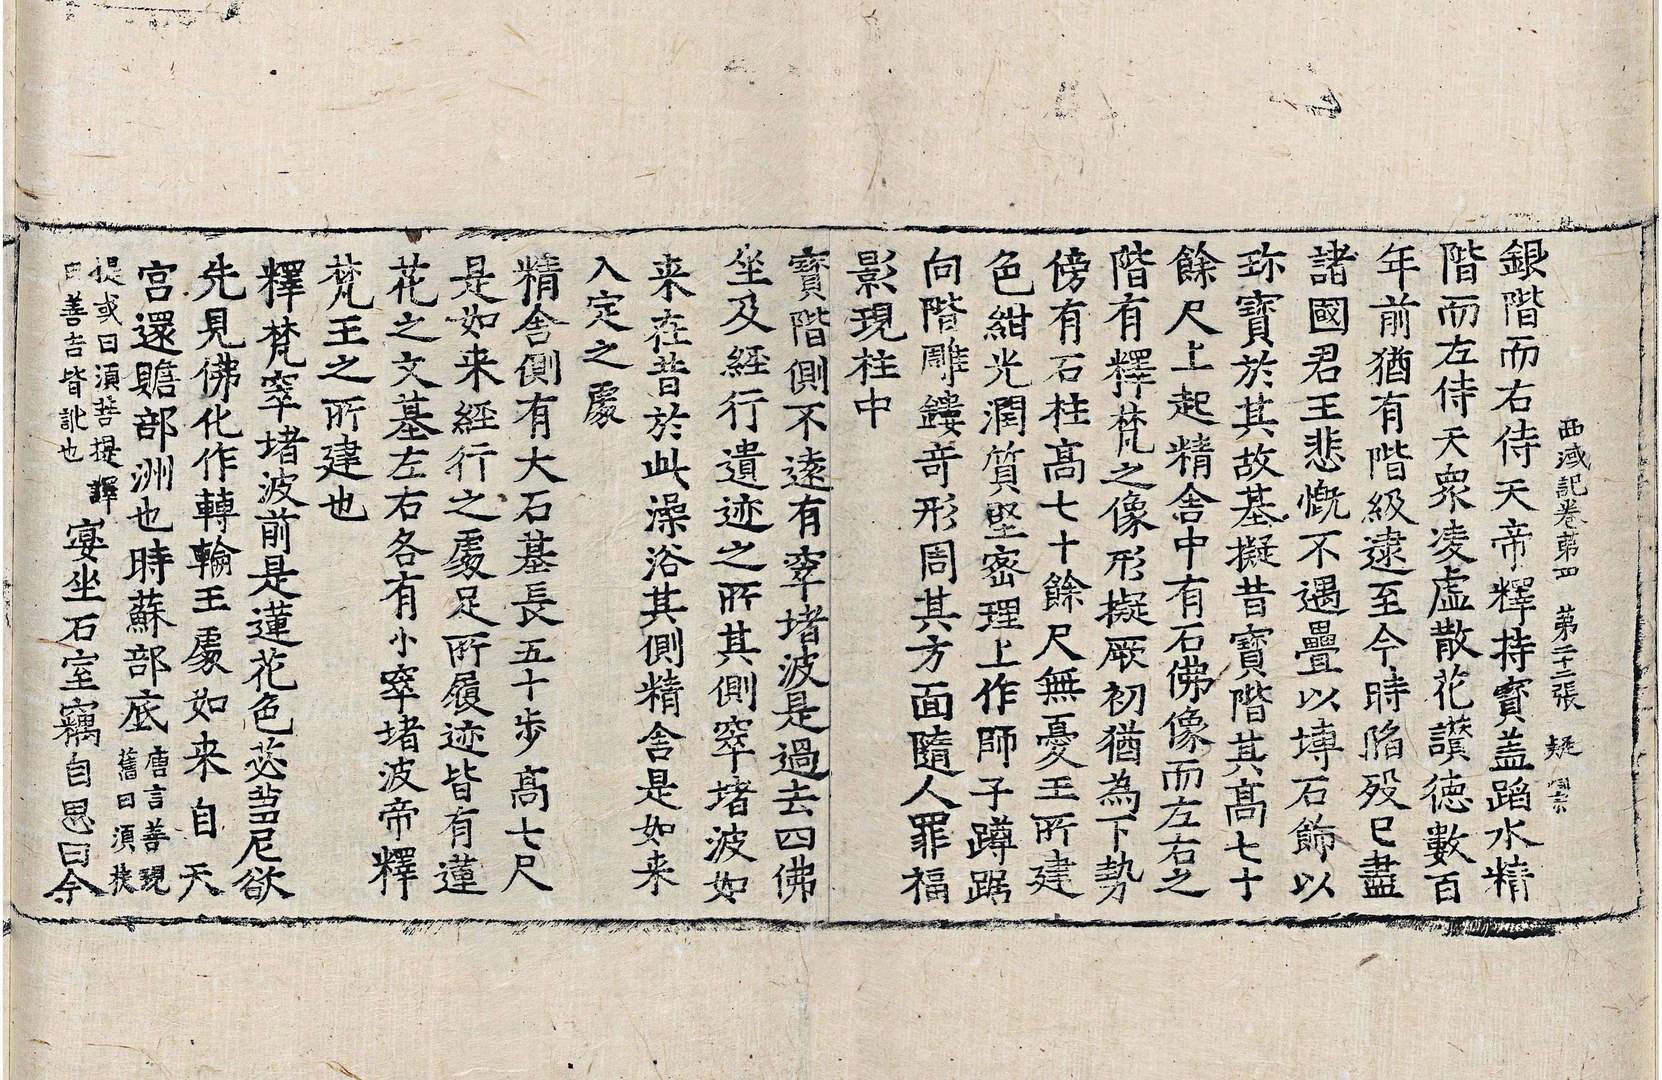 西域記卷第四　第二十二張　疑
銀階而右侍天帝釋持寳盖蹈水精
階而左侍天衆凌虛散花讃德數百
年前猶有階級逮至今時陷殁已盡
諸國君王悲慨不遇疊以塼石飾以
珎寳於其故基擬昔寳階其髙七十
餘尺上起精舎中有石佛像而左右之
階有釋梵之像形擬厥初猶為下勢
傍有石柱髙七十餘尺無憂王所建
色紺光潤質堅密理上作師子蹲踞
向階雕鏤竒形周其方面隨人罪福
影現柱中
寳階側不遠有窣堵波是過去四佛
坐及經行遺迹之所其側窣堵波如
来在昔於此澡浴其側精舎是如来
入定之處
精舎側有大石基長五十歩髙七尺
是如来經行之處足所履迹皆有蓮
花之文基左右各有小窣堵波帝釋
梵王之所建也
釋梵窣堵波前是蓮花色苾芻尼欲
先見佛化作轉輪王處如来自天
宮還贍部洲也時蘇部底唐言善現舊曰須扶
提或曰須菩提譯曰善吉皆訛也宴坐石室竊自思曰今